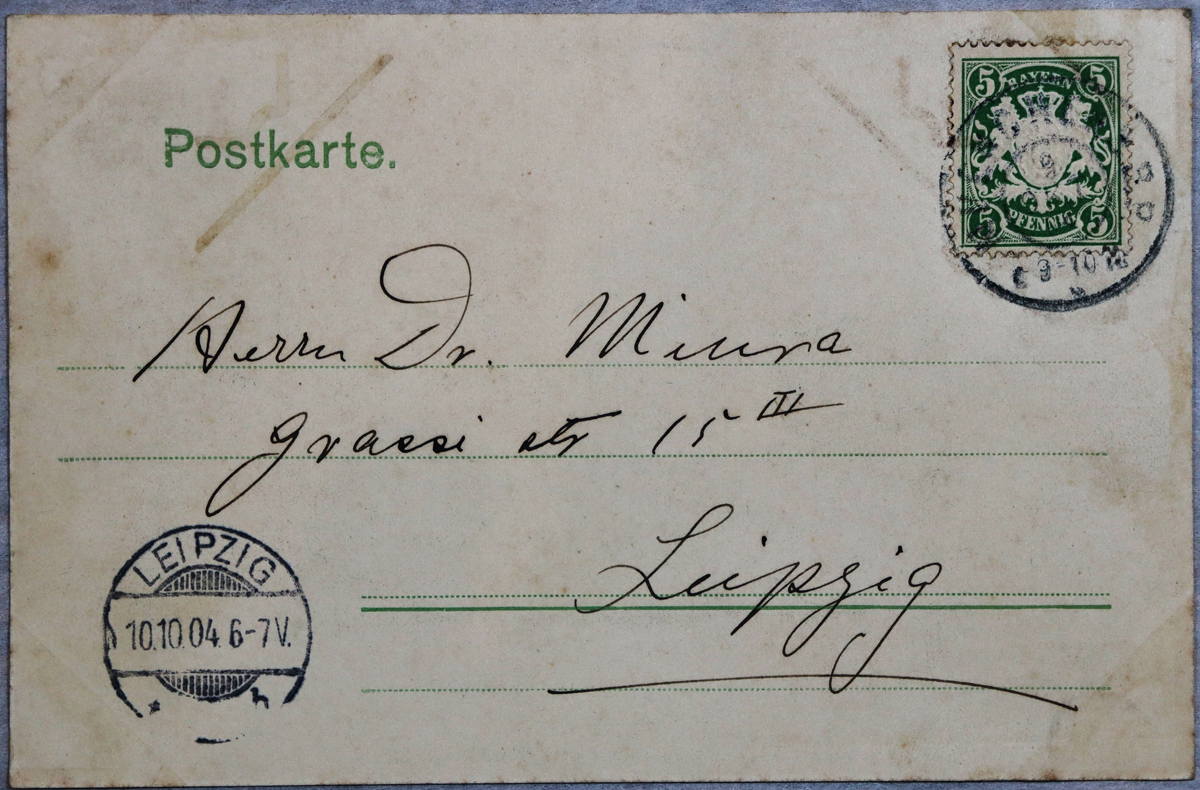 Postkarte.
5 BAYERN 5
5 PFENNIG 5
9-10
Herrn Dr. Miura
Grassi str 15 III
Leipzig
LEIPZIG
10.10.04. 6-7V.
* h